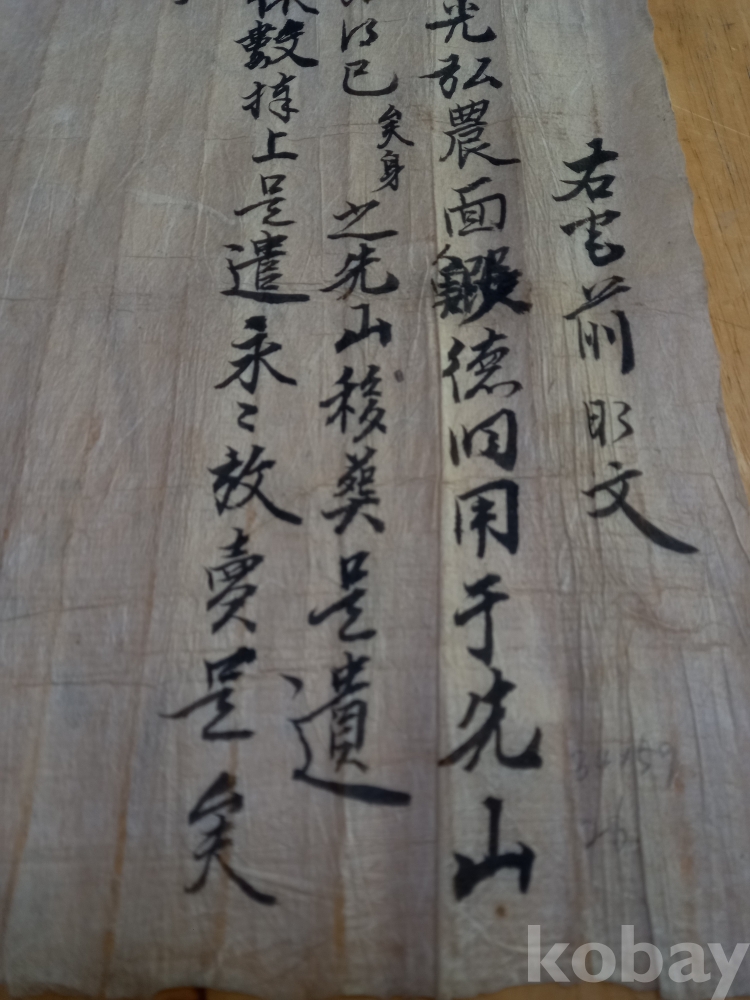 右宅前明文
光弘農面德回用于先山
得已矣身之先山移葬是遺
數捧上是遣永〻放賣是矣
kobay